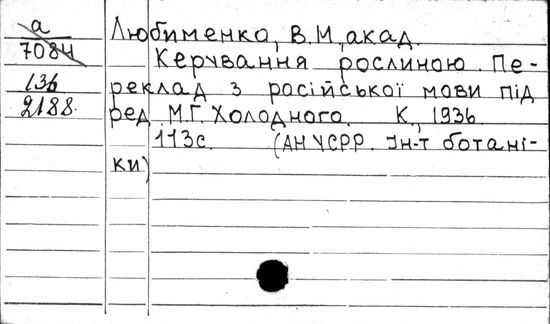 а
7084
136
2188.
Любименко, В.М, акад.
Керування рослиною. Пе-
реклад з російської мови під
ред. М.Г. Холодного. К., 1936
113с. (АН УСРР. Ін-т ботані-
ки)